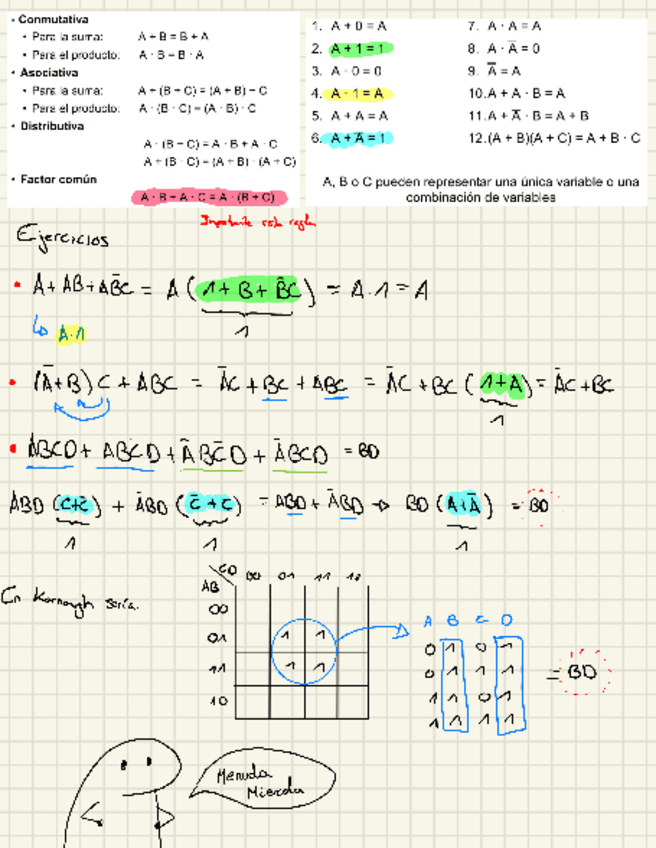 • Conmutativa
• Para la suma: A + B = B + A
• Para el producto: A · B = B · A
• Asociativa
• Para la suma: A + (B + C) = (A + B) + C
• Para el producto: A · (B · C) = (A · B) · C
• Distributiva
A · (B + C) = A · B + A · C
A + (B · C) = (A + B) · (A + C)
• Factor común
A · B + A · C = A · (B + C)
Importante esta regla
1. A + 0 = A
2. A + 1 = 1
3. A · 0 = 0
4. A · 1 = A
5. A + A = A
6. A + A̅ = 1
7. A · A = A
8. A · A̅ = 0
9. A̿ = A
10. A + A · B = A
11. A + A̅ · B = A + B
12. (A + B)(A + C) = A + B · C
A, B o C pueden representar una única variable o una
combinación de variables
Ejercicios
• A + AB + AB̅C = A (1 + B + B̅C) = A · 1 = A
1
A·1
• (A̅ + B) C + ABC = A̅C + BC + ABC = A̅C + BC (1+A) = A̅C + BC
1
• ABCD + ABC̅D + A̅BC̅D + A̅BCD = BD
ABD (C+C̅) + A̅BD (C̅+C) = ABD + A̅BD → BD (A+A̅) = BD
1 1 1
En Karnaugh sería.
CD 00 01 11 10
AB
00
01 1 1
11 1 1
10
A B C D
0 1 0 1
0 1 1 1
1 1 0 1
1 1 1 1
= BD
Menuda
Mierda